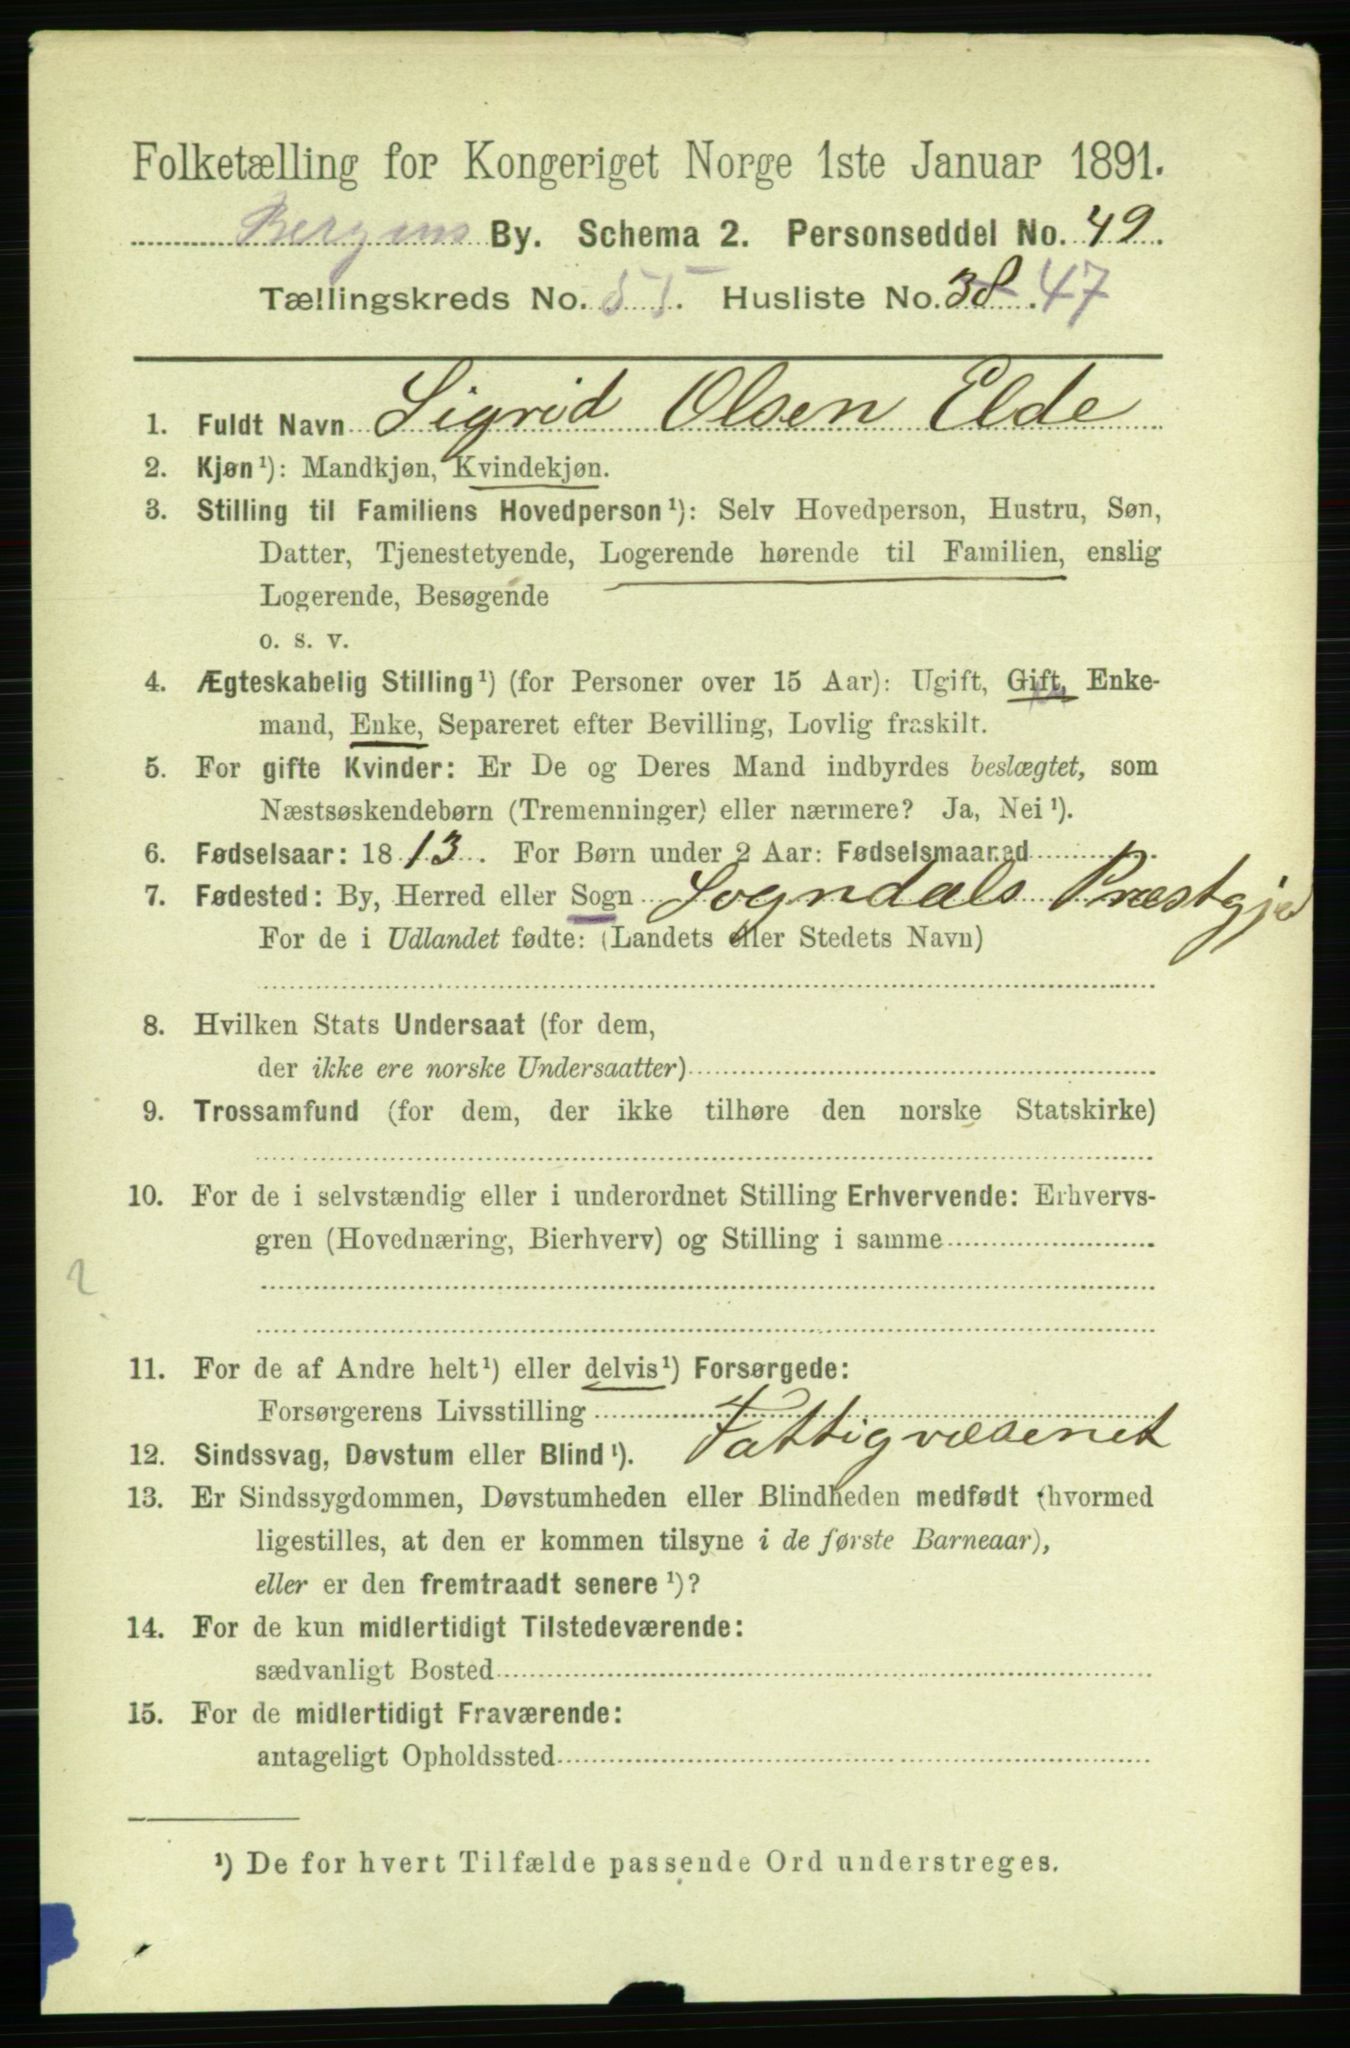 Folketælling for Kongeriget Norge 1ste Januar 1891.
Bergens By. Schema 2. Personseddel No. 49.
Tællingskreds No. 55. Husliste No. 38. 47
1. Fuldt Navn Sigrid Olsen Elde
2. Kjøn¹): Mandkjøn, Kvindekjøn.
3. Stilling til Familiens Hovedperson¹): Selv Hovedperson, Hustru, Søn,
Datter, Tjenestetyende, Logerende hørende til Familien, enslig
Logerende, Besøgende
o. s. v.
4. Ægteskabelig Stilling¹) (for Personer over 15 Aar): Ugift, Gift, Enke-
mand, Enke, Separeret efter Bevilling, Lovlig fraskilt.
5. For gifte Kvinder: Er De og Deres Mand indbyrdes beslægtet, som
Næstsøskendebørn (Tremenninger) eller nærmere? Ja, Nei¹).
6. Fødselsaar: 1813. For Børn under 2 Aar: Fødselsmaaned
7. Fødested: By, Herred eller Sogn Sogndals Præstgjd
For de i Udlandet fødte: (Landets eller Stedets Navn)
8. Hvilken Stats Undersaat (for dem,
der ikke ere norske Undersaatter)
9. Trossamfund (for dem, der ikke tilhøre den norske Statskirke)
10. For de i selvstændig eller i underordnet Stilling Erhvervende: Erhvervs-
gren (Hovednæring, Bierhverv) og Stilling i samme
2
11. For de af Andre helt¹) eller delvis¹) Forsørgede:
Forsørgerens Livsstilling Fattigvæsenet
12. Sindssvag, Døvstum eller Blind¹).
13. Er Sindssygdommen, Døvstumheden eller Blindheden medfødt (hvormed
ligestilles, at den er kommen tilsyne i de første Barneaar),
eller er den fremtraadt senere¹)?
14. For de kun midlertidigt Tilstedeværende:
sædvanligt Bosted
15. For de midlertidigt Fraværende:
antageligt Opholdssted
¹) De for hvert Tilfælde passende Ord understreges.